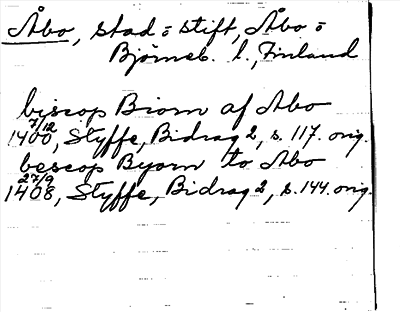 Åbo, stad o stift, Åbo o
Björneb. l., Finland
biscop Biorn af Åbo
7/12
1400, Styffe, Bidrag 2, s. 117. orig.
bescop Byorn to Åbo
27/9
1408, Styffe, Bidrag 2, s. 144. orig.